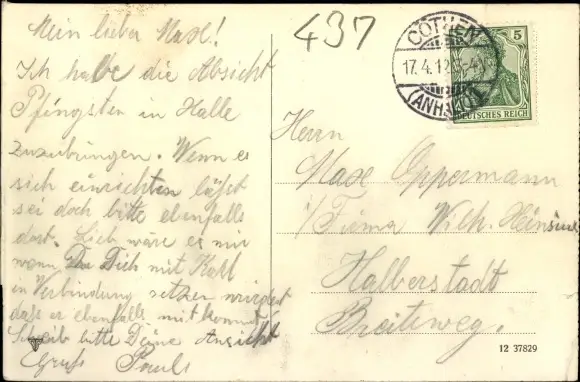 437
CÖTHEN
17.4.12.
(ANHALT)
5
DEUTSCHES REICH
Mein lieber Maxe!
Ich habe die Absicht
Pfingsten in Halle
zuzubringen. Wenn es
sich einrichten läßt
sei doch bitte ebenfalls
dort. Lieb wäre es mir
wenn Du Dich mit Karl
in Verbindung setzen würdest
daß er ebenfalls mitkommt.
Schreib bitte Deine Ansicht
Gruß Paul
Herrn
Max Oppermann
i/Firma Wilh.
Halberstadt
Breiteweg.
12 37829